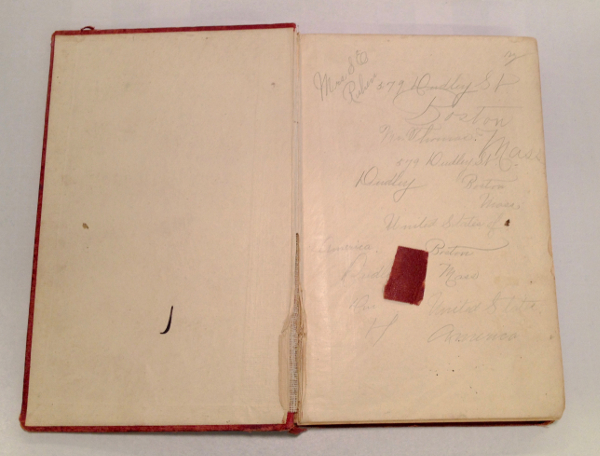 Mrs
579 Dudley St
Boston
Mass
579 Dudley St
Dudley Boston
Mass.
United States of
America. Boston
Mass
United States
of America